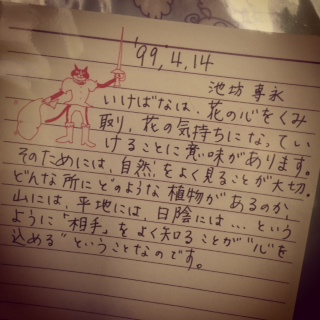 '99,4,14
池坊 専永
いけばなは、花の心をくみ
取り、花の気持ちになってい
けることに意味があります。
そのためには、自然をよく見ることが大切。
どんな所にどのような植物があるのか、
山には、平地には、日陰には…という
ように「相手」をよく知ることが"心"を
込める"ということなのです。